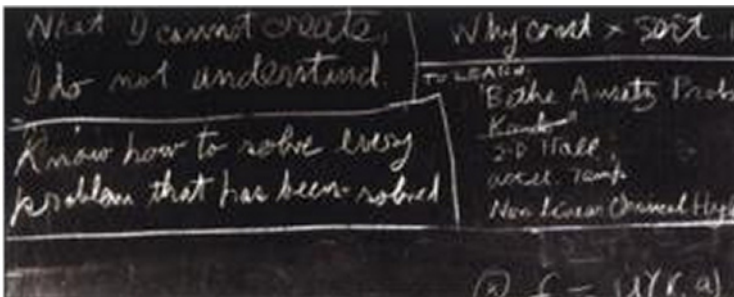 What I cannot create,
I do not understand.
Know how to solve every
problem that has been solved
Why const × sort
TO LEARN:
Bethe Ansatz Probs
Kondo
2-D Hall
accel. Temp
Non Linear Classical Hydro